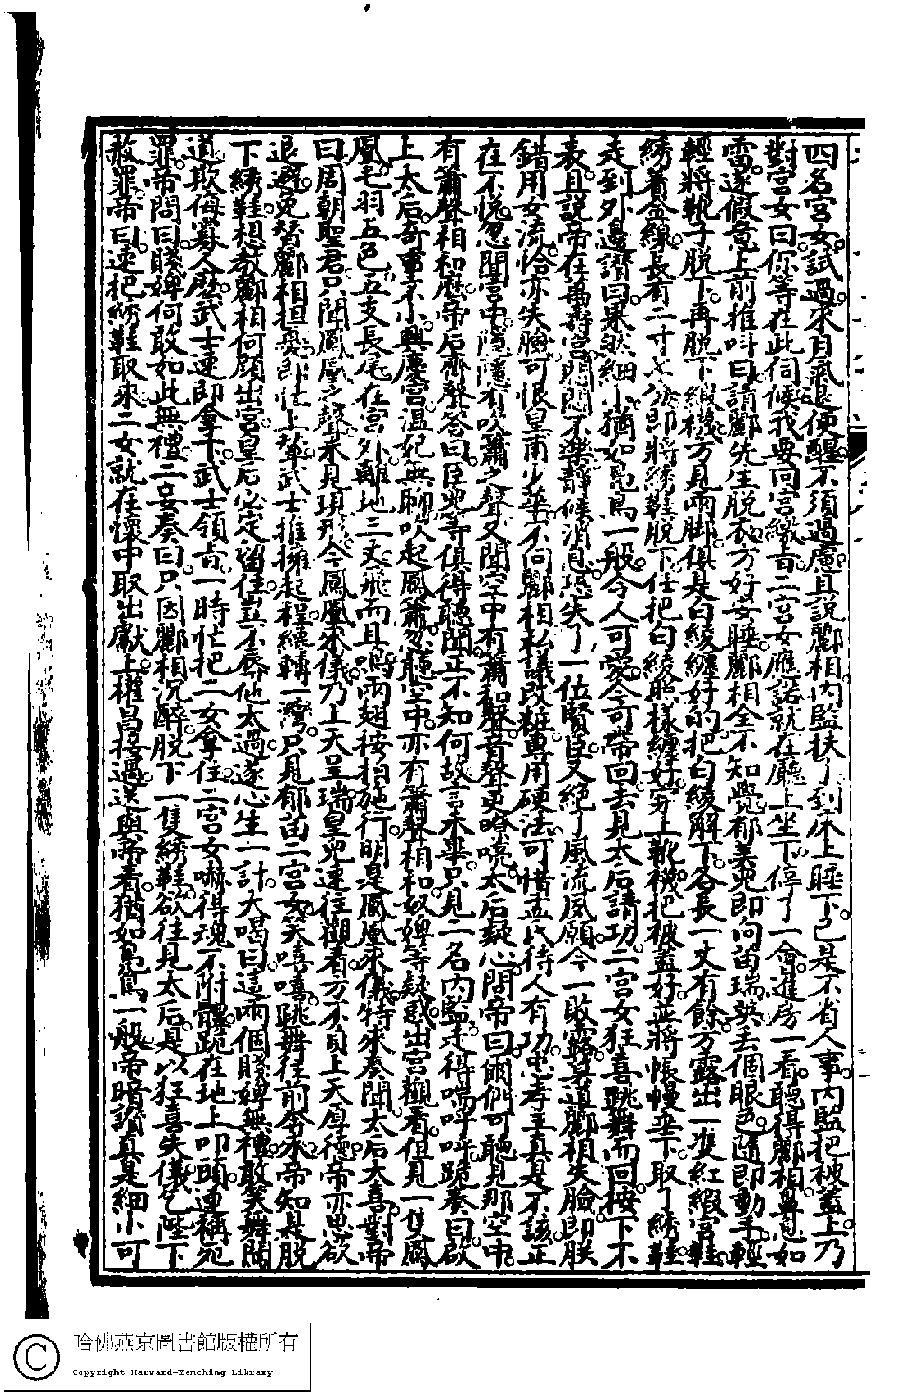 四名宮女試過來百氣退便醒不須過慮且說酈相內監扶了到床上睡下已是不省人事內監把被蓋上乃
對宮女曰你等在此伺候我要回宮繳旨二宮女應諾就在廳上坐下停了一會進房一看聽得酈相鼻息如
雷遂假意上前推叫曰請酈先生脫衣方好安睡酈相全不知覺郁美兒即向苗瑞英丟個眼色隨即動手輕
輕將靴子脫下再脫下緞襪方見兩脚俱是白綾纏好的把白綾解下各長一丈有餘方露出一雙紅緞宮鞋
綉着金線長有二寸七分即將綉鞋脫下仍把白綾照樣纏好穿上靴襪把被蓋好並將帳幔垂下取了綉鞋
走到外邊讚曰果然細小猶如鳧鳥一般令人可愛今可帶回去見太后請功二宮女狂喜跳舞而回按下不
表且說帝在萬壽宮悶悶不樂靜候消息恐失了一位賢臣又絕了風流夙願今一敗露莫道酈相失臉即朕
錯用女流恰亦失臉可恨皇甫少華不向酈相私議改粧專用硬法可惜孟氏待人有功忠孝主真是不該正
在不悅忽聞宮中隱隱有吹簫之聲又聞空中有簫和聲音聲更嘹喨太后疑心問帝曰爾們可聽見那空中
有簫聲相和麽帝后齊聲答曰臣兒等俱得聽聞正不知何故言未畢只見二名內監走得喘呼呼跪奏曰啟
上太后奇事不小興慶宮溫妃無聊吹起鳳簫忽聽空中亦有簫聲相和奴婢等疑惑出宮觀看但見一隻鳳
凰毛羽五色五支長尾在宮外離地三丈飛而且鳴兩翅按拍施行明是鳳凰來儀特來奏聞太后大喜對帝
曰周朝聖君只聞鳳凰之聲未見現形今鳳凰來儀乃上天呈瑞皇兒速往觀看方不負上天厚德帝亦思欲
退避免替酈相担憂即忙上輦武士推擁起程纔轉一灣只見郁苗二宮女笑嘻嘻跳舞往前奔來帝知是脫
下綉鞋想救酈相何顏出宮皇后必定留住豈不辱他太過遂心生一計大喝曰這兩個賤婢無禮敢笑舞闖
道欺侮寡人麽武士速即拿下武士領旨一時忙把二女拿住二宮女嚇得魂不附體跪在地上叩頭連稱死
罪帝問曰賤婢何敢如此無禮二妾奏曰只因酈相沉醉脫下一隻綉鞋欲往見太后是以狂喜失儀乞陛下
赦罪帝曰速把綉鞋取來二女就在懷中取出獻上權昌接過送與帝看猶如鳧鳥一般帝暗讚真是細小可
哈佛燕京圖書館版權所有
Copyright Harvard-Yenching Library